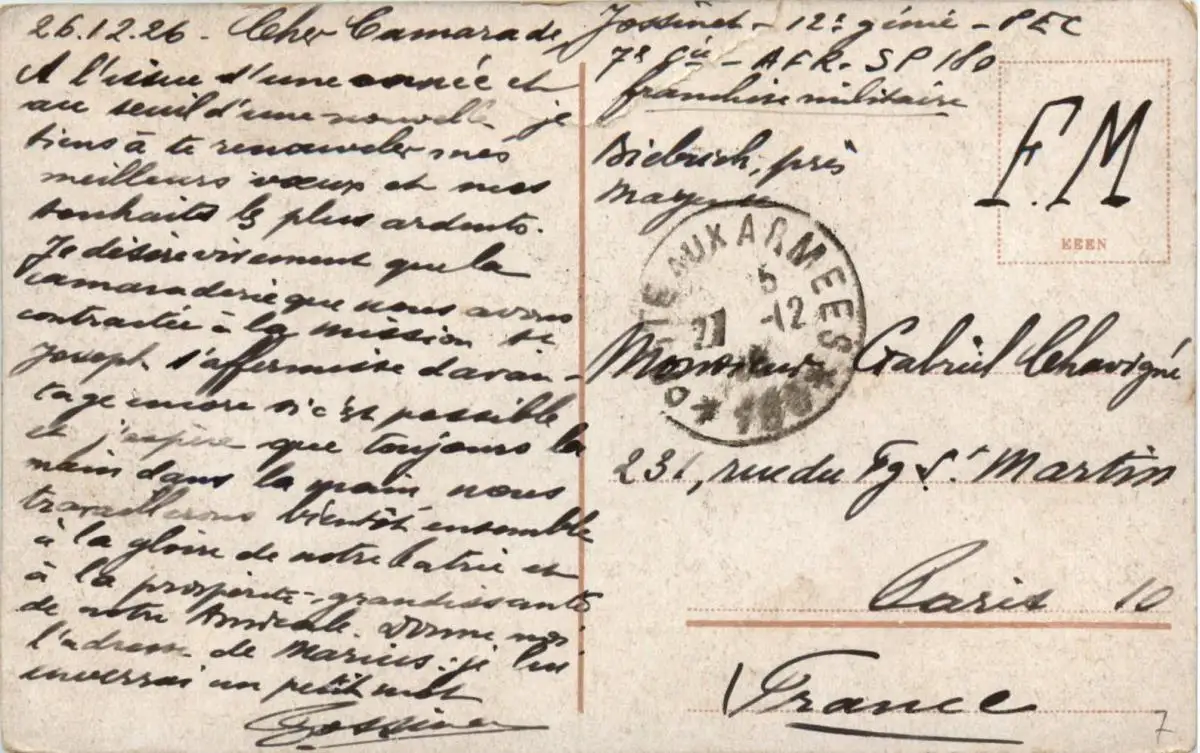 26.12.26. Cher Camarade,
A l'issue d'une année et
au seuil d'une nouvelle, je
tiens à te renouveler mes
meilleurs vœux et mes
souhaits les plus ardents.
Je désire vivement que la
camaraderie que nous avons
contractée à la mission St
Joseph s'affermisse davan-
tage encore si c'est possible
et j'espère que toujours la
main dans la main nous
travaillerons bientôt ensemble
à la gloire de notre Patrie et
à la prospérité grandissante
de notre Amicale. Donne moi
l'adresse de Marius: je lui
enverrai un petit mot
Jossinet
Jossinet - 12e génie - PEC
7e Cie - AFR. SP 180
franchise militaire
Biebrich, près
Mayence
F.M
EEEN
POSTE AUX ARMEES
5
27 -12
* 180 *
Monsieur Gabriel Chavigné
231, rue du Fg St Martin
Paris 10
France
7